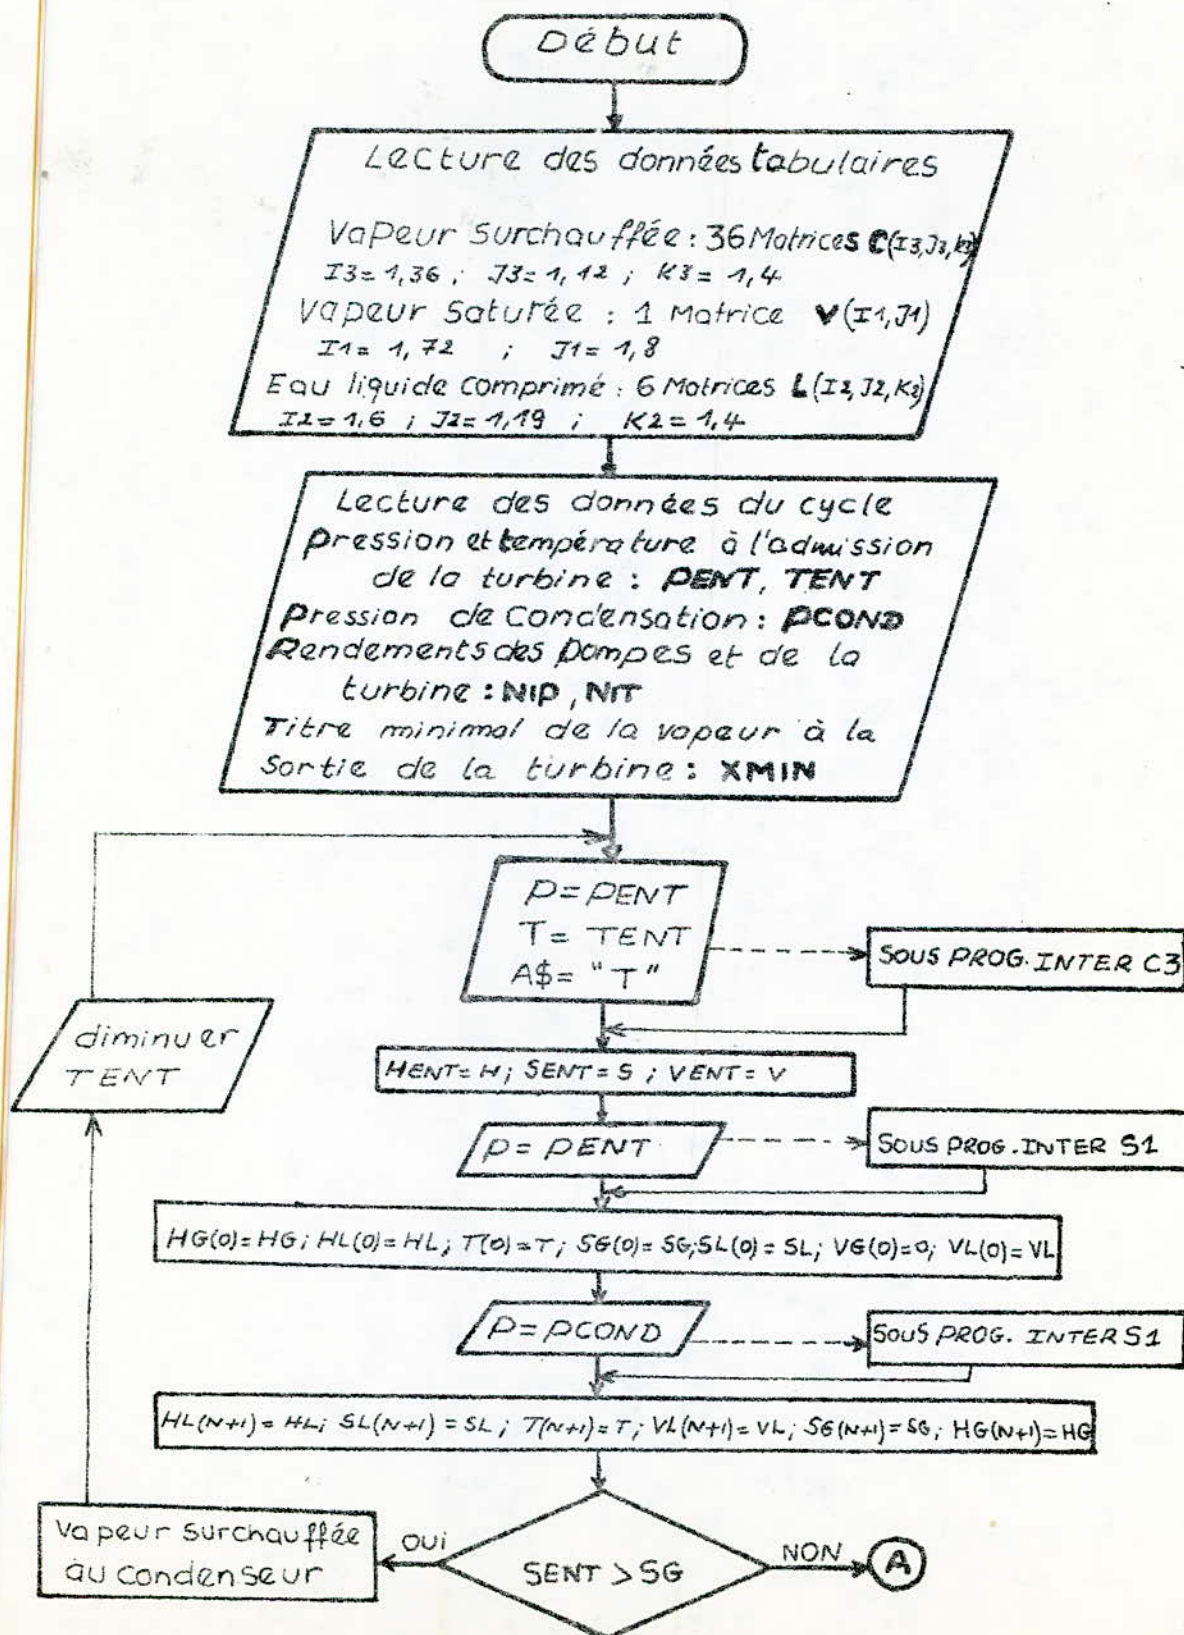 Début
Lecture des données tabulaires
Vapeur Surchauffée : 36 Matrices C(I3,J3,K3)
I3=1,36 ; J3=1,12 ; K3=1,4
Vapeur Saturée : 1 Matrice V(I1,J1)
I1=1,72 ; J1=1,8
Eau liquide comprimé : 6 Matrices L(I2,J2,K2)
I2=1,6 ; J2=1,19 ; K2=1,4
Lecture des données du cycle
Pression et température à l'admission
de la turbine : PENT, TENT
Pression de Condensation : PCOND
Rendements des pompes et de la
turbine : NIP, NIT
Titre minimal de la vapeur à la
Sortie de la turbine : XMIN
P=PENT
T= TENT
A$= "T"
SOUS PROG. INTER C3
diminuer
TENT
HENT=H ; SENT=S ; VENT=V
P=PENT
SOUS PROG. INTER S1
HG(0)=HG ; HL(0)=HL ; T(0)=T ; SG(0)=SG ; SL(0)=SL ; VG(0)=0 ; VL(0)=VL
P=PCOND
SOUS PROG. INTER S1
HL(N+1)=HL ; SL(N+1)=SL ; T(N+1)=T ; VL(N+1)=VL ; SG(N+1)=SG ; HG(N+1)=HG
Vapeur Surchauffée
au condenseur
OUI
SENT > SG
NON
A